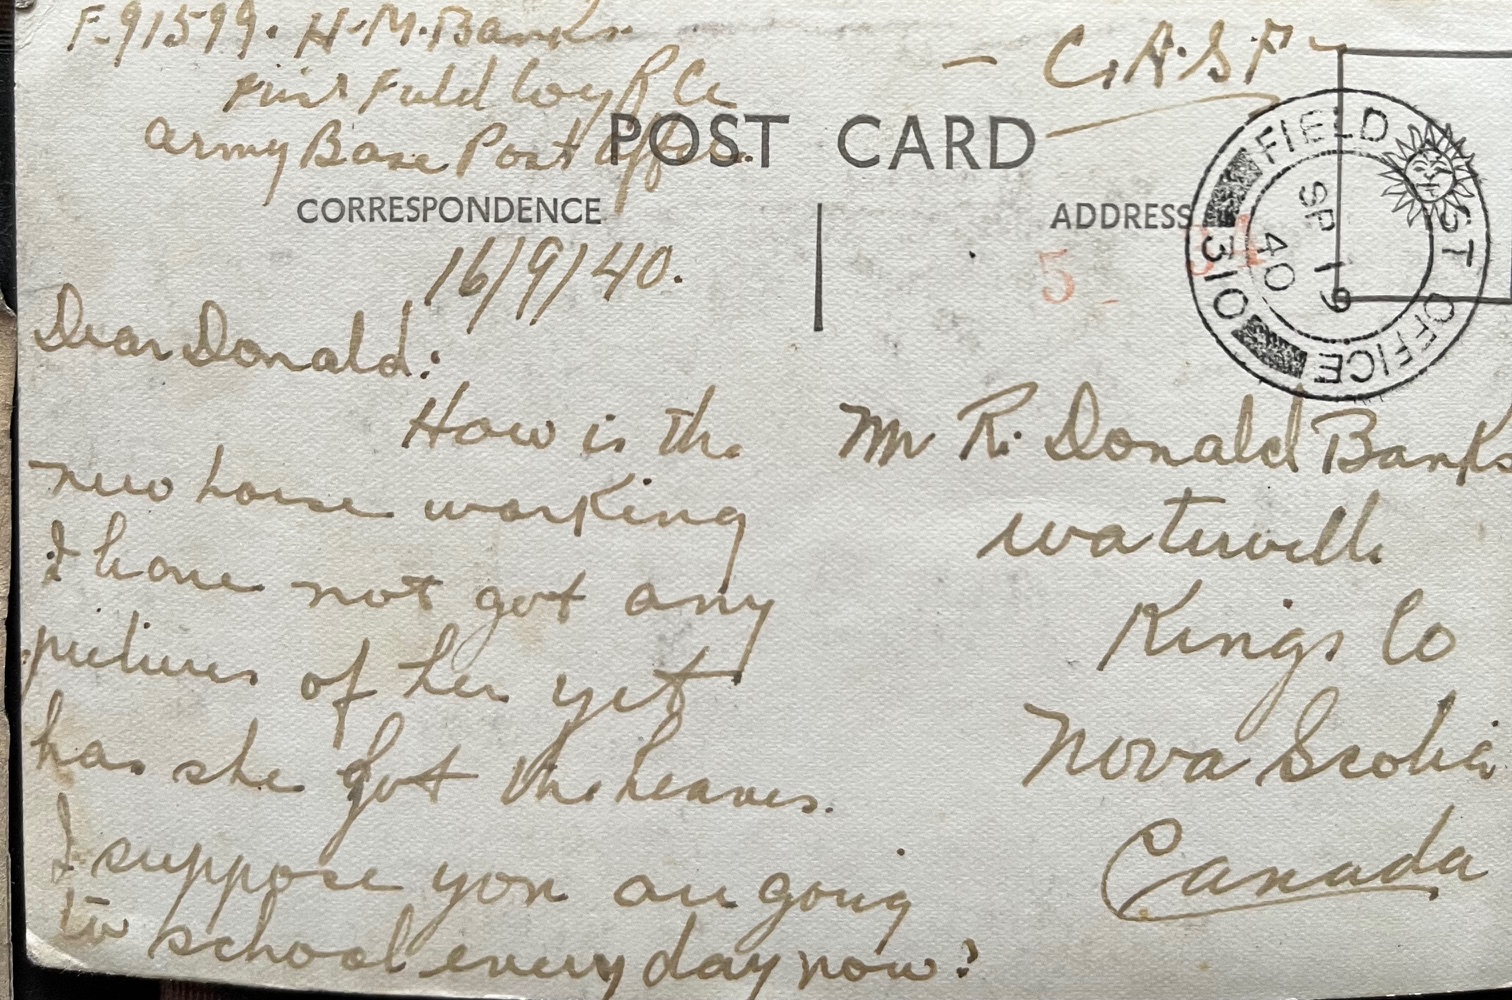 F.91599. H.M. Banks. — C.A.S.F.
First Field Coy R.C.E.
Army Base Post Office.
POST CARD
CORRESPONDENCE
ADDRESS
FIELD POST OFFICE
310
SP 19
40
5 - 34
16/9/40.
Dear Donald:
How is the
new horse working
I have not got any
pictures of her yet
has she got the heaves.
I suppose you are going
to school every day now?
Mr R. Donald Banks
Waterville
Kings Co
Nova Scotia
Canada